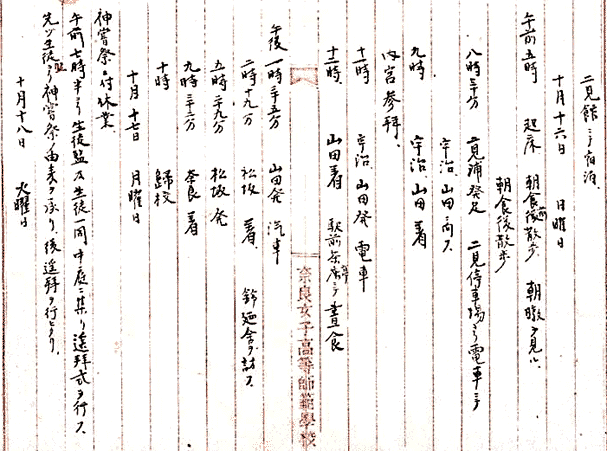 二見館ニ宿泊。
十月十六日 日曜日
午前五時 起床 朝食前散歩 朝暾ヲ見ル
朝食後散歩
八時三十分 二見浦発足 二見停車場ヨリ電車ニテ
宇治山田ニ向フ
九時 宇治山田着
内宮参拝、
十一時 宇治山田発 電車
十二時 山田着 駅前茶店ニテ晝食
奈良女子高等師範學校
午後一時三十五分 山田発 汽車
二時十九分 松坂着 鈴廼舎ヲ訪フ
五時三十九分 松坂発
九時三十六分 奈良着
十時 歸校
十月十七日 月曜日
神嘗祭ニ付休業
午前七時半ヨリ生徒監及生徒一同中庭ニ集リ遥拝式ヲ行フ
先ヅ生徒監ヨリ神嘗祭ノ由来ヲ承リ、後遥拝ヲ行ヒタリ。
十月十八日 火曜日